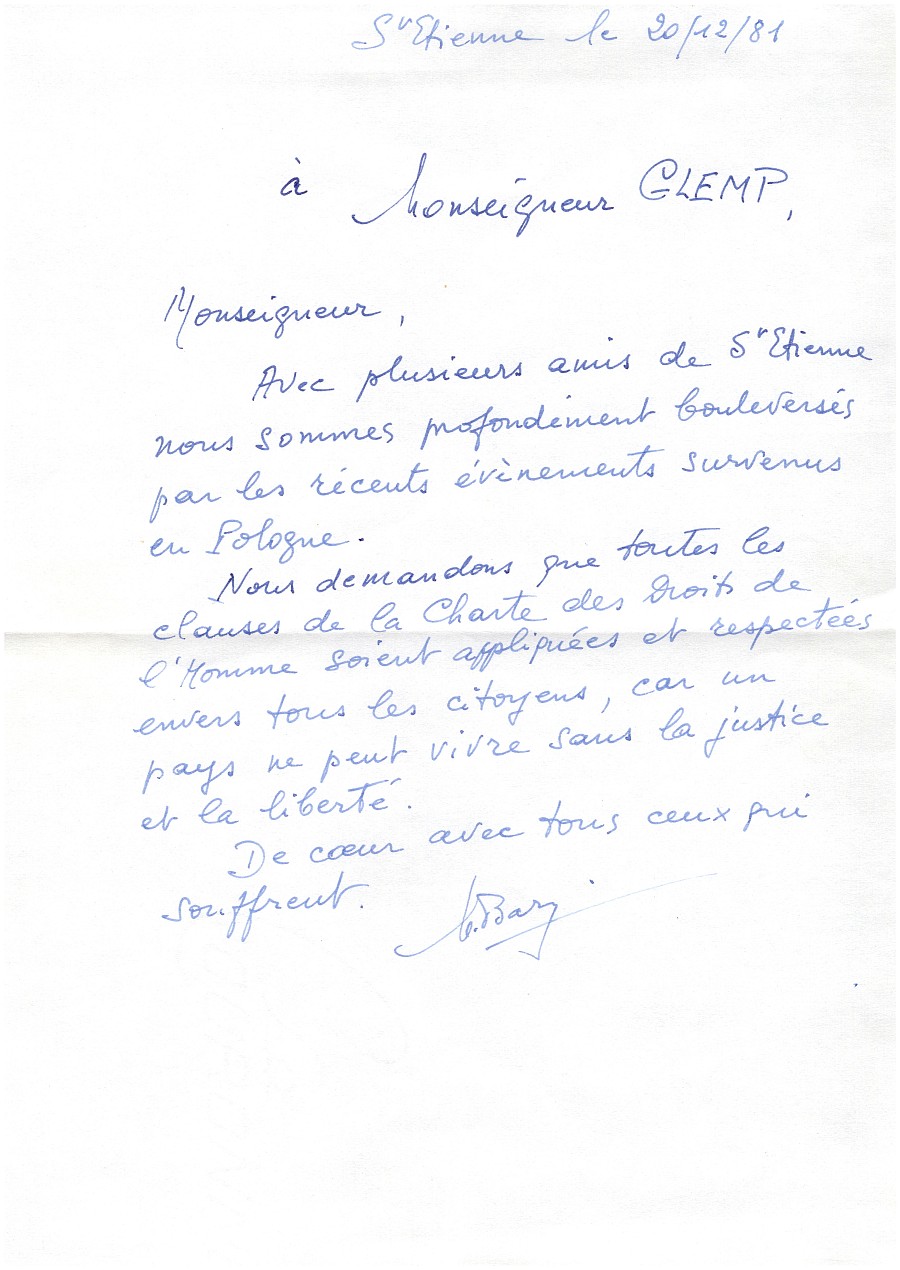 St Etienne le 20/12/81
à Monseigneur GLEMP,
Monseigneur,
Avec plusieurs amis de St Etienne
nous sommes profondément bouleversés
par les récents évènements survenus
en Pologne.
Nous demandons que toutes les
clauses de la Charte des Droits de
l'Homme soient appliquées et respectées
envers tous les citoyens, car un
pays ne peut vivre sans la justice
et la liberté.
De cœur avec tous ceux qui
souffrent.